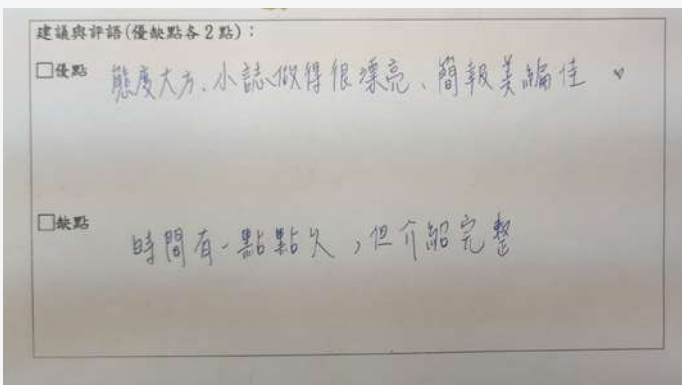 建議與評語(優缺點各2點)：
□優點 態度大方、小誌做得很漂亮、簡報美編佳
□缺點 時間有一點點久，但介紹完整